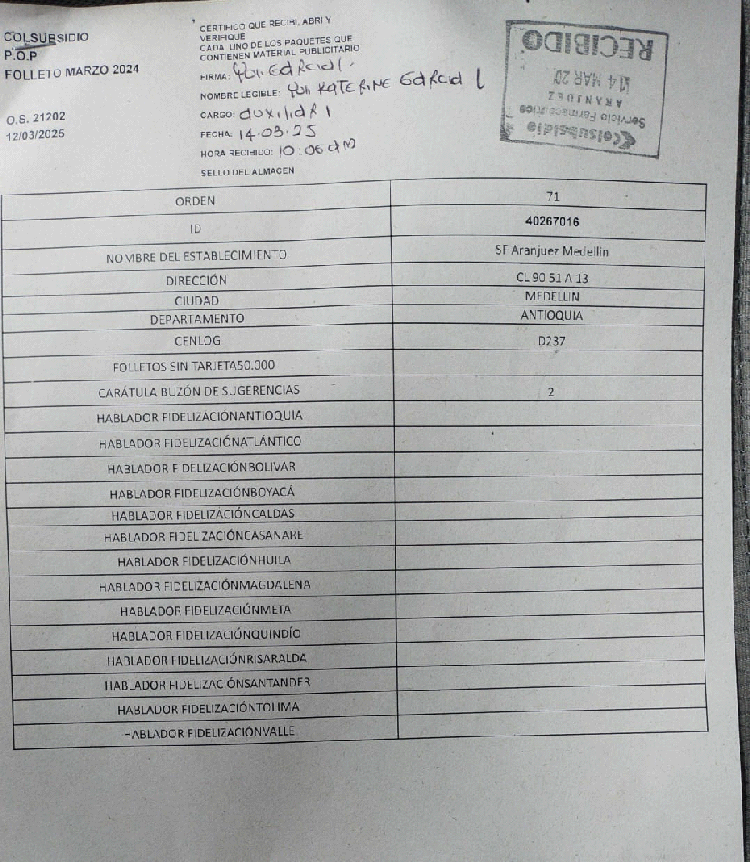 COLSUBSIDIO
P.O.P
FOLLETO MARZO 2024
O.S. 21202
12/03/2025
CERTIFICO QUE RECIBI, ABRI Y
VERIFIQUE
CADA UNO DE LOS PAQUETES QUE
CONTIENEN MATERIAL PUBLICITARIO
FIRMA:
NOMBRE LEGIBLE: KATERINE GARCIA
CARGO: auxiliar 1
FECHA: 14-03-25
HORA RECIBIDO: 10:06 am
SELLO DEL ALMACEN
Colsubsidio
Servicio Farmacéutico
ARANJUEZ
14 MAR 20
RECIBIDO
ORDEN 71
ID 40267016
NOMBRE DEL ESTABLECIMIENTO SF Aranjuez Medellin
DIRECCIÓN CL 90 51 A 13
CIUDAD MEDELLIN
DEPARTAMENTO ANTIOQUIA
CENLOG D237
FOLLETOS SIN TARJETA50.000
CARÁTULA BUZÓN DE SUGERENCIAS 2
HABLADOR FIDELIZACIÓNANTIOQUIA
HABLADOR FIDELIZACIÓNATLÁNTICO
HABLADOR FIDELIZACIÓNBOLIVAR
HABLADOR FIDELIZACIÓNBOYACÁ
HABLADOR FIDELIZACIÓNCALDAS
HABLADOR FIDELIZACIÓNCASANARE
HABLADOR FIDELIZACIÓNHUILA
HABLADOR FIDELIZACIÓNMAGDALENA
HABLADOR FIDELIZACIÓNMETA
HABLADOR FIDELIZACIÓNQUINDÍO
HABLADOR FIDELIZACIÓNRISARALDA
HABLADOR FIDELIZACIÓNSANTANDER
HABLADOR FIDELIZACIÓNTOLIMA
HABLADOR FIDELIZACIONVALLE